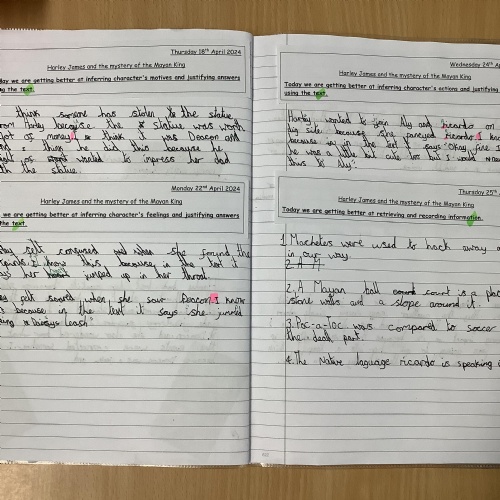 Thursday 18th April 2024
Harley James and the mystery of the Mayan King
day we are getting better at inferring character's motives and justifying answers
ng the text.
think someone has stolen the statue
from Harley because the statue was worth
lot of money. I think it was Deacon and
I think he did this because he
wanted to impress her dad
with the statue.
Monday 22nd April 2024
Harley James and the mystery of the Mayan King
we are getting better at inferring character's feelings and justifying answers
the text.
felt confused when she found the
I know this because in the text it
says her jumped up in her throat.
felt when she saw Deacon. I know
is because in the text it says "she jumped
leash"
Wednesday 24th Ap
Harley James and the mystery of the Mayan
Today we are getting better at inferring character's actions and justifying
using the text.
Harley wanted to join Aly and ricardo on
because she ricardo. I know
because in the text it says "Okay fine I
he was a little bit cute
to Aly.
Thursday 25th
Harley James and the mystery of the Mayan
Today we are getting better at retrieving and recording information.
1. Machetes were used to hack away a
in our way.
2. A M
2. A Mayan ball court is a pla
stone walls and a slope around it.
3. Poc-a-Toc was compared to soccer
the death part.
4. The Native laguage ricardo is speaking i